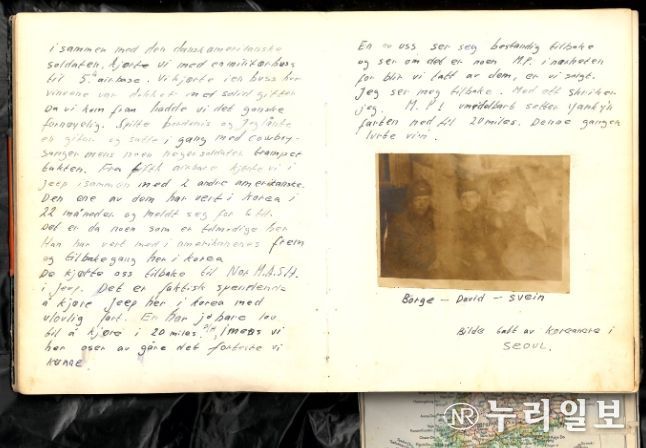 i sammen med den danskamerikanske
soldaten. kjørte vi med en militærbuss
til 5th airbase. Vi kjørte i en buss hvor
vinuene var dekket med solid gitter
Da vi kom fram hadde vi det ganske
fornøyelig. Spilte og Jeg lånte
en gitar og satte i gang med cowboy-
sanger mens noen negersoldater trampet
takten. Fra fifth airbase kjørte vi i
jeep i sammen med 2 andre amerikanske.
Den ene av dem har vert i Korea i
22 måneder og meldt seg for 6 til.
Det er da noen som er tålmodige her
Han har vert med i amerikanernes frem
og tilbakegang her i Korea
De kjørte oss tilbake til Nor M.A.S.H.
i jeep. Det er faktisk spendende
å kjøre jeep her i Korea med
ulovlig fart. En har jo bare lov
til å kjøre i 20 miles. P/H. Imens vi
her oser av gåre det forteste vi
kunne.
En av oss ser seg bestandig tilbake
og ser om det er noen M.P. i nærheten
for blir vi tatt av dem, er vi solgt.
Jeg ser meg tilbake. Med ett skriker
jeg. M.P! umiddelbart setter yankyn
farten ned til 20 miles. Denne gangen
lurte vi'n.
Borge - David - svein
Bilde tatt av Koreanere i
SEOUL.
NR 누리일보